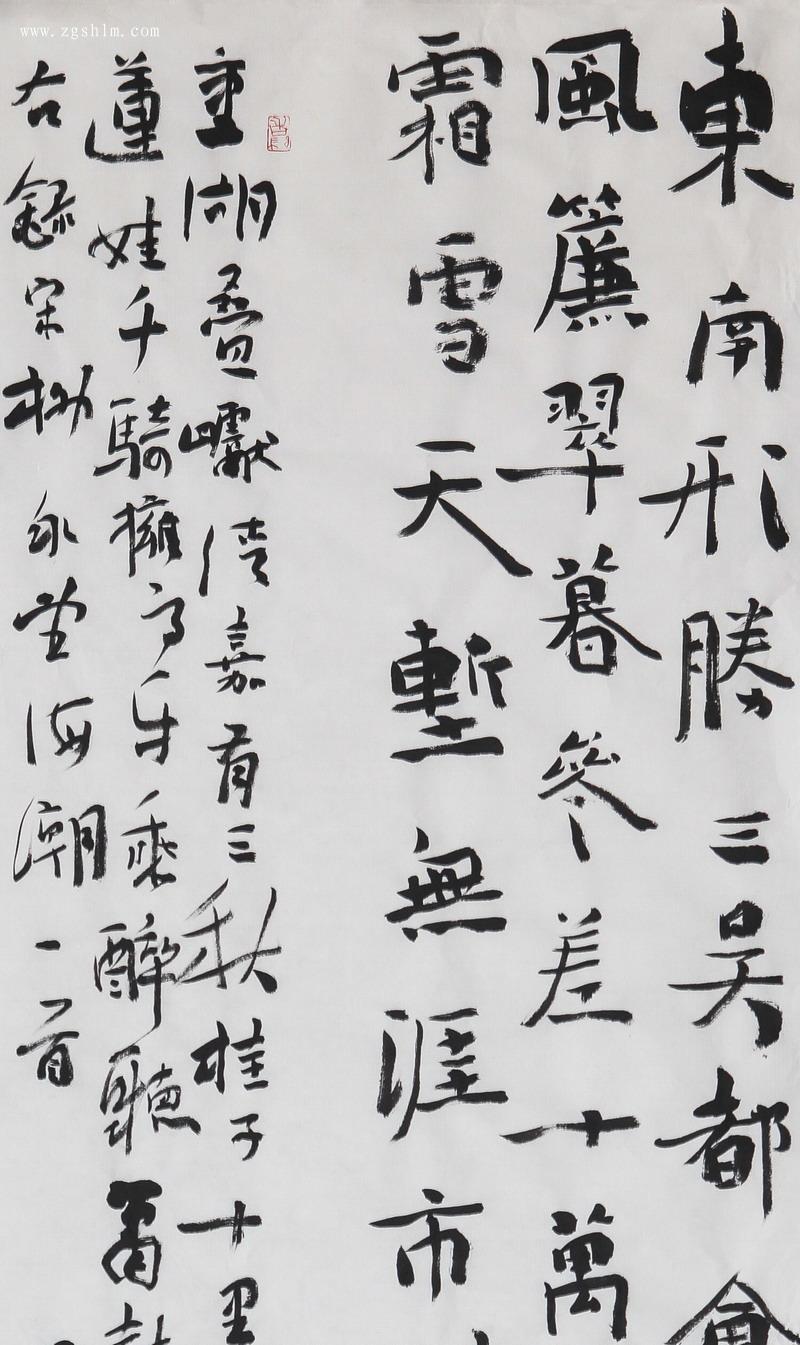 www.zgshlm.com
東南形勝三吴都會
風簾翠暮參差十萬
霜雪天塹無涯市
重湖疊巘清嘉有三秋桂子十里
蓮娃千騎擁高牙乘醉聽簫鼓
右錄宋柳永望海潮一首